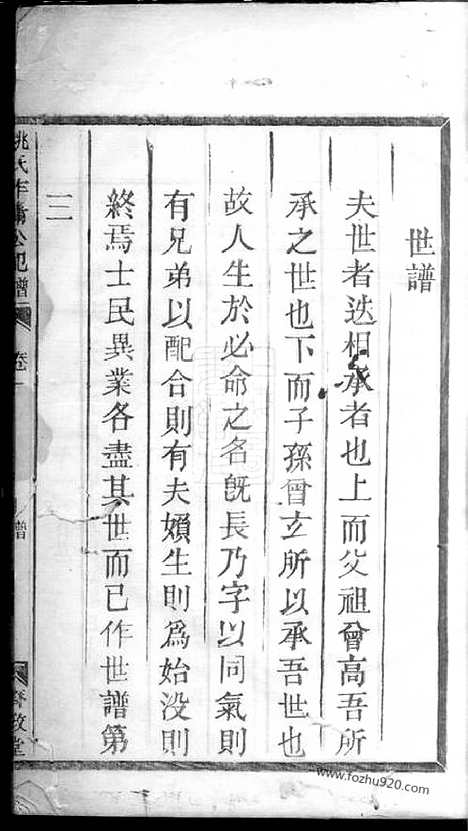 世譜
夫世者迭相承者也上而父祖曾高吾所
承之世也下而子孫曾玄所以承吾世也
故人生於必命之名旣長乃字以同氣則
有兄弟以配合則有夫嬪生則爲始没則
終焉士民異業各盡其世而已作世譜第
三
譜
卷一
譜
www.fozhu920.com